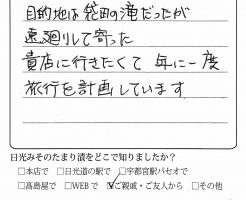 目的地は袋田の滝だったが
遠廻りして寄った
貴店に行きたくて 年に一度
旅行を計画しています
日光みそのたまり漬をどこで知りましたか?
□本店で □日光道の駅で □宇都宮駅パセオで
□高島屋で □WEBで ☑ご親戚・ご友人から □その他